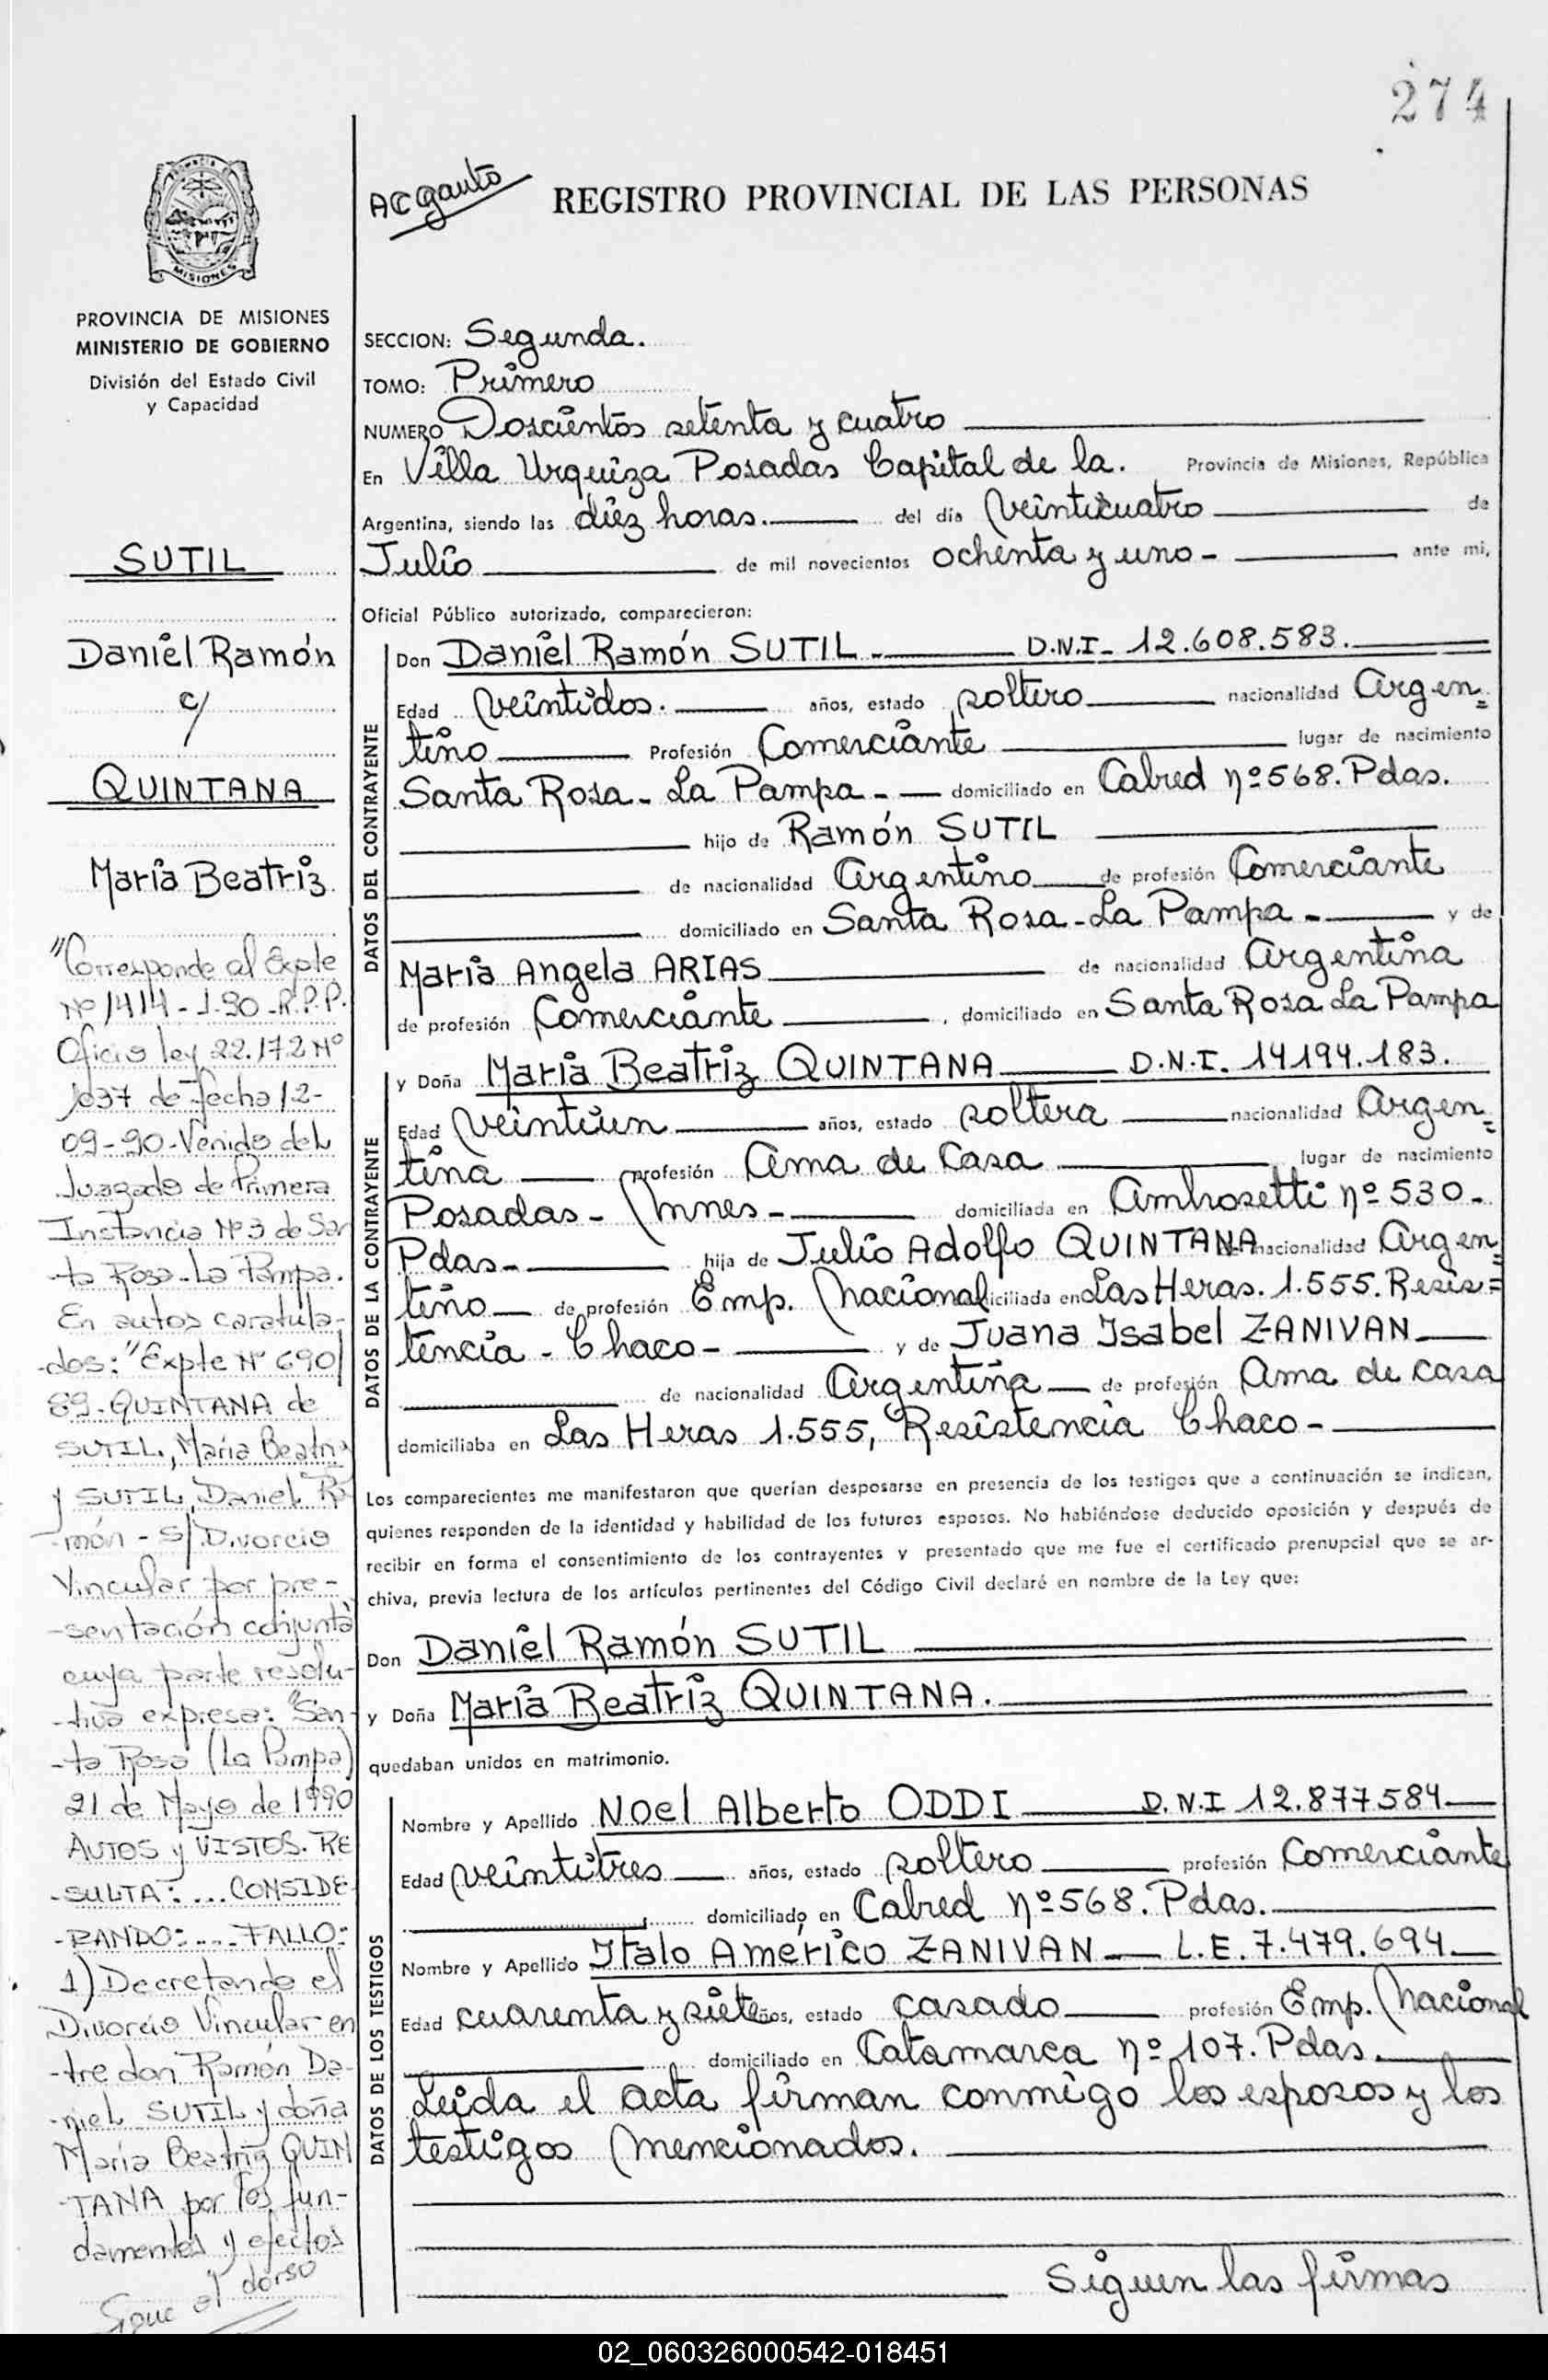 274
REGISTRO PROVINCIAL DE LAS PERSONAS
MISIONES
PROVINCIA DE MISIONES
MINISTERIO DE GOBIERNO
División del Estado Civil
y Capacidad
SUTIL
Daniel Ramón
c/
QUINTANA
María Beatriz
"Corresponde al Expte
Nº 1414-J-90-R.P.P.
Oficio ley 22.172 Nº
1037 de fecha 12-
09-90-Venido del
Juzgado de Primera
Instancia Nº 3 de San
-ta Rosa-La Pampa.
En autos caratula-
-dos: "Expte Nº 690/
89-QUINTANA de
SUTIL, María Beatriz
y SUTIL, Daniel Ra
-món - S/Divorcio
Vincular por pre-
-sentación conjunta
cuya parte resolu-
-tiva expresa: "San-
-ta Rosa (La Pampa)
21 de Mayo de 1990
AUTOS y VISTOS. RE
-SULTA: ... CONSIDE-
-RANDO: .... FALLO:
1) Decretando el
Divorcio Vincular en
-tre don Ramón Da-
-niel SUTIL y doña
María Beatriz QUIN
-TANA por los fun-
damentos y efectos
Sigue al dorso
SECCION: Segunda.
TOMO: Primero
NUMERO Doscientos setenta y cuatro
En Villa Urquiza Posadas Capital de la. Provincia de Misiones, República
Argentina, siendo las diez horas. del día veinticuatro de
Julio de mil novecientos ochenta y uno- ante mi,
Oficial Público autorizado, comparecieron:
DATOS DEL CONTRAYENTE
Don Daniel Ramón SUTIL- D.N.I- 12.608.583.
Edad veintidos. años, estado soltero nacionalidad Argen=
tino Profesión Comerciante lugar de nacimiento
Santa Rosa- La Pampa- domiciliado en Cabred nº 568. Pdas.
hijo de Ramón SUTIL
de nacionalidad Argentino de profesión Comerciante
domiciliado en Santa Rosa-La Pampa- y de
María Angela ARIAS de nacionalidad Argentina
de profesión Comerciante, domiciliado en Santa Rosa La Pampa
DATOS DE LA CONTRAYENTE
y Doña María Beatriz QUINTANA D.N.I. 14194.183.
Edad veintiun años, estado soltera nacionalidad Argen=
tina profesión Ama de Casa lugar de nacimiento
Posadas- Mnes- domiciliada en Ambrosetti nº 530-
Pdas- hija de Julio Adolfo QUINTANA nacionalidad Argen=
tino de profesión Emp. Nacional iciliada en Las Heras. 1.555. Resis=
tencia - Chaco- y de Juana Isabel ZANIVAN
de nacionalidad Argentina de profesión Ama de casa
domiciliaba en Las Heras 1.555, Resistencia Chaco-
Los comparecientes me manifestaron que querían desposarse en presencia de los testigos que a continuación se indican,
quienes responden de la identidad y habilidad de los futuros esposos. No habiéndose deducido oposición y después de
recibir en forma el consentimiento de los contrayentes y presentado que me fue el certificado prenupcial que se ar-
chiva, previa lectura de los artículos pertinentes del Código Civil declaré en nombre de la Ley que:
Don Daniel Ramón SUTIL
y Doña María Beatriz QUINTANA.
quedaban unidos en matrimonio.
DATOS DE LOS TESTIGOS
Nombre y Apellido Noel Alberto ODDI D.N.I 12.877584
Edad veintitres años, estado soltero profesión Comerciante
domiciliado en Cabred nº 568. Pdas.
Nombre y Apellido Italo Américo ZANIVAN L.E. 7.479.694
Edad cuarenta y siete años, estado casado profesión Emp. Nacional
domiciliado en Catamarca nº 107. Pdas.
Leida el acta firman conmigo los esposos y los
testigos mencionados.
Siguen las firmas
02_060326000542-018451